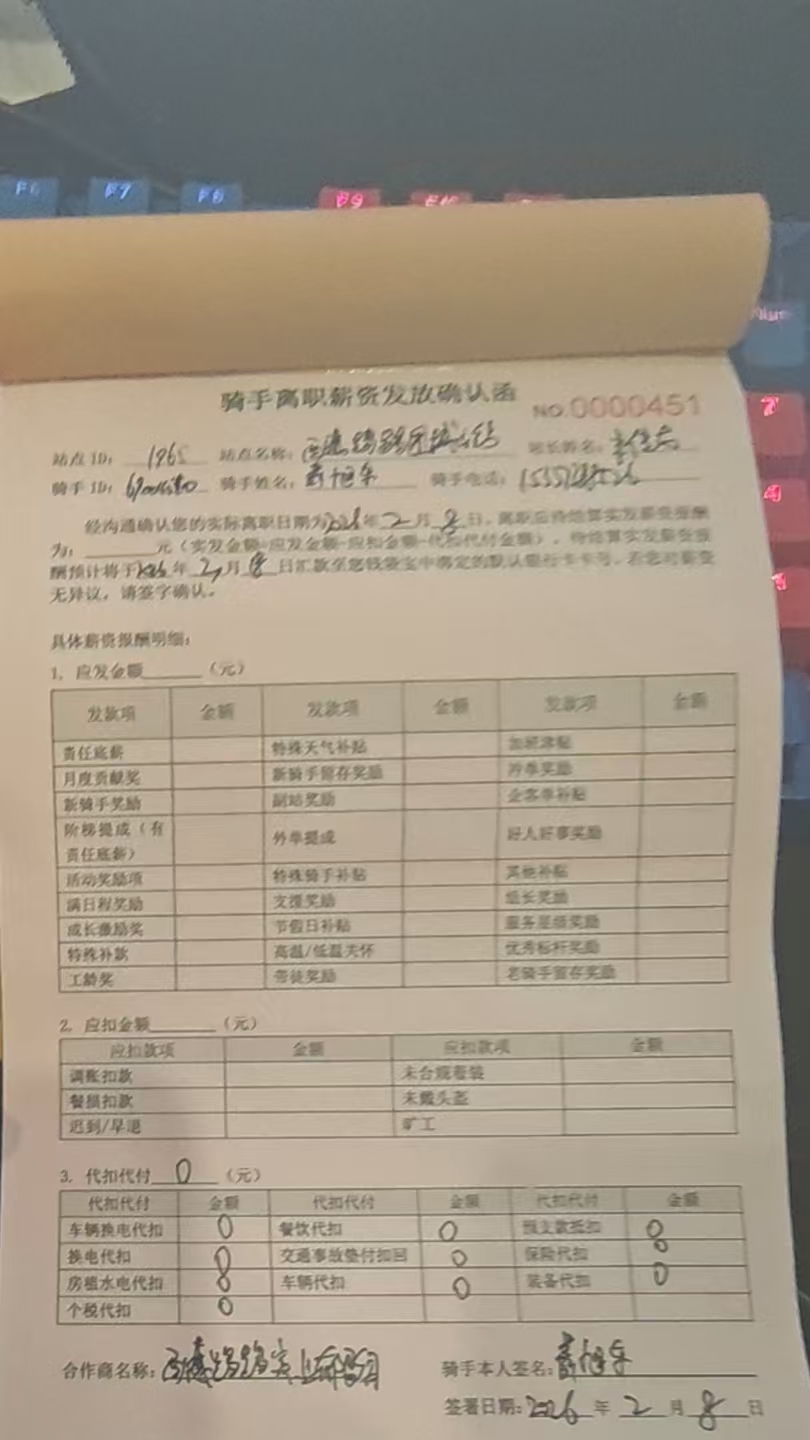 F6 F7 F8 F9 F10
7
4
骑手离职薪资发放确认函 NO.0000451
站点ID: 1965 站点名称: 站长姓名:
骑手ID: 骑手姓名: 骑手电话:
经沟通确认您的实际离职日期为2026年2月8日。离职应待结算实发薪资报酬
为: 元（实发金额=应发金额-应扣金额-代扣代付金额）。待结算实发薪资报
酬预计将于2026年2月8日汇款至您钱袋宝中绑定的默认银行卡卡号。若您对薪资
无异议，请签字确认。
具体薪资报酬明细：
1. 应发金额 （元）
发款项 金额 发款项 金额 发款项 金额
责任底薪 特殊天气补贴
月度贡献奖 新骑手留存奖励 冲单奖励
新骑手奖励 副站奖励 企客单补贴
阶梯提成（有责任底薪） 外单提成 好人好事奖励
活动奖励项 特殊骑手补贴 其他补贴
满日程奖励 支援奖励 组长奖励
成长激励奖 节假日补贴 服务星级奖励
特殊补款 高温/低温关怀 优秀标杆奖励
工龄奖 带徒奖励 老骑手留存奖励
2. 应扣金额 （元）
应扣款项 金额 应扣款项 金额
调账扣款 未合规着装
餐损扣款 未戴头盔
迟到/早退 旷工
3. 代扣代付 0 （元）
代扣代付 金额 代扣代付 金额 代扣代付 金额
车辆换电代扣 0 餐饮代扣 0 预支款抵扣 0
换电代扣 0 交通事故垫付扣回 0 保险代扣 0
房租水电代扣 0 车辆代扣 0 装备代扣 0
个税代扣 0
合作商名称: 骑手本人签名:
签署日期: 2026 年 2 月 8 日